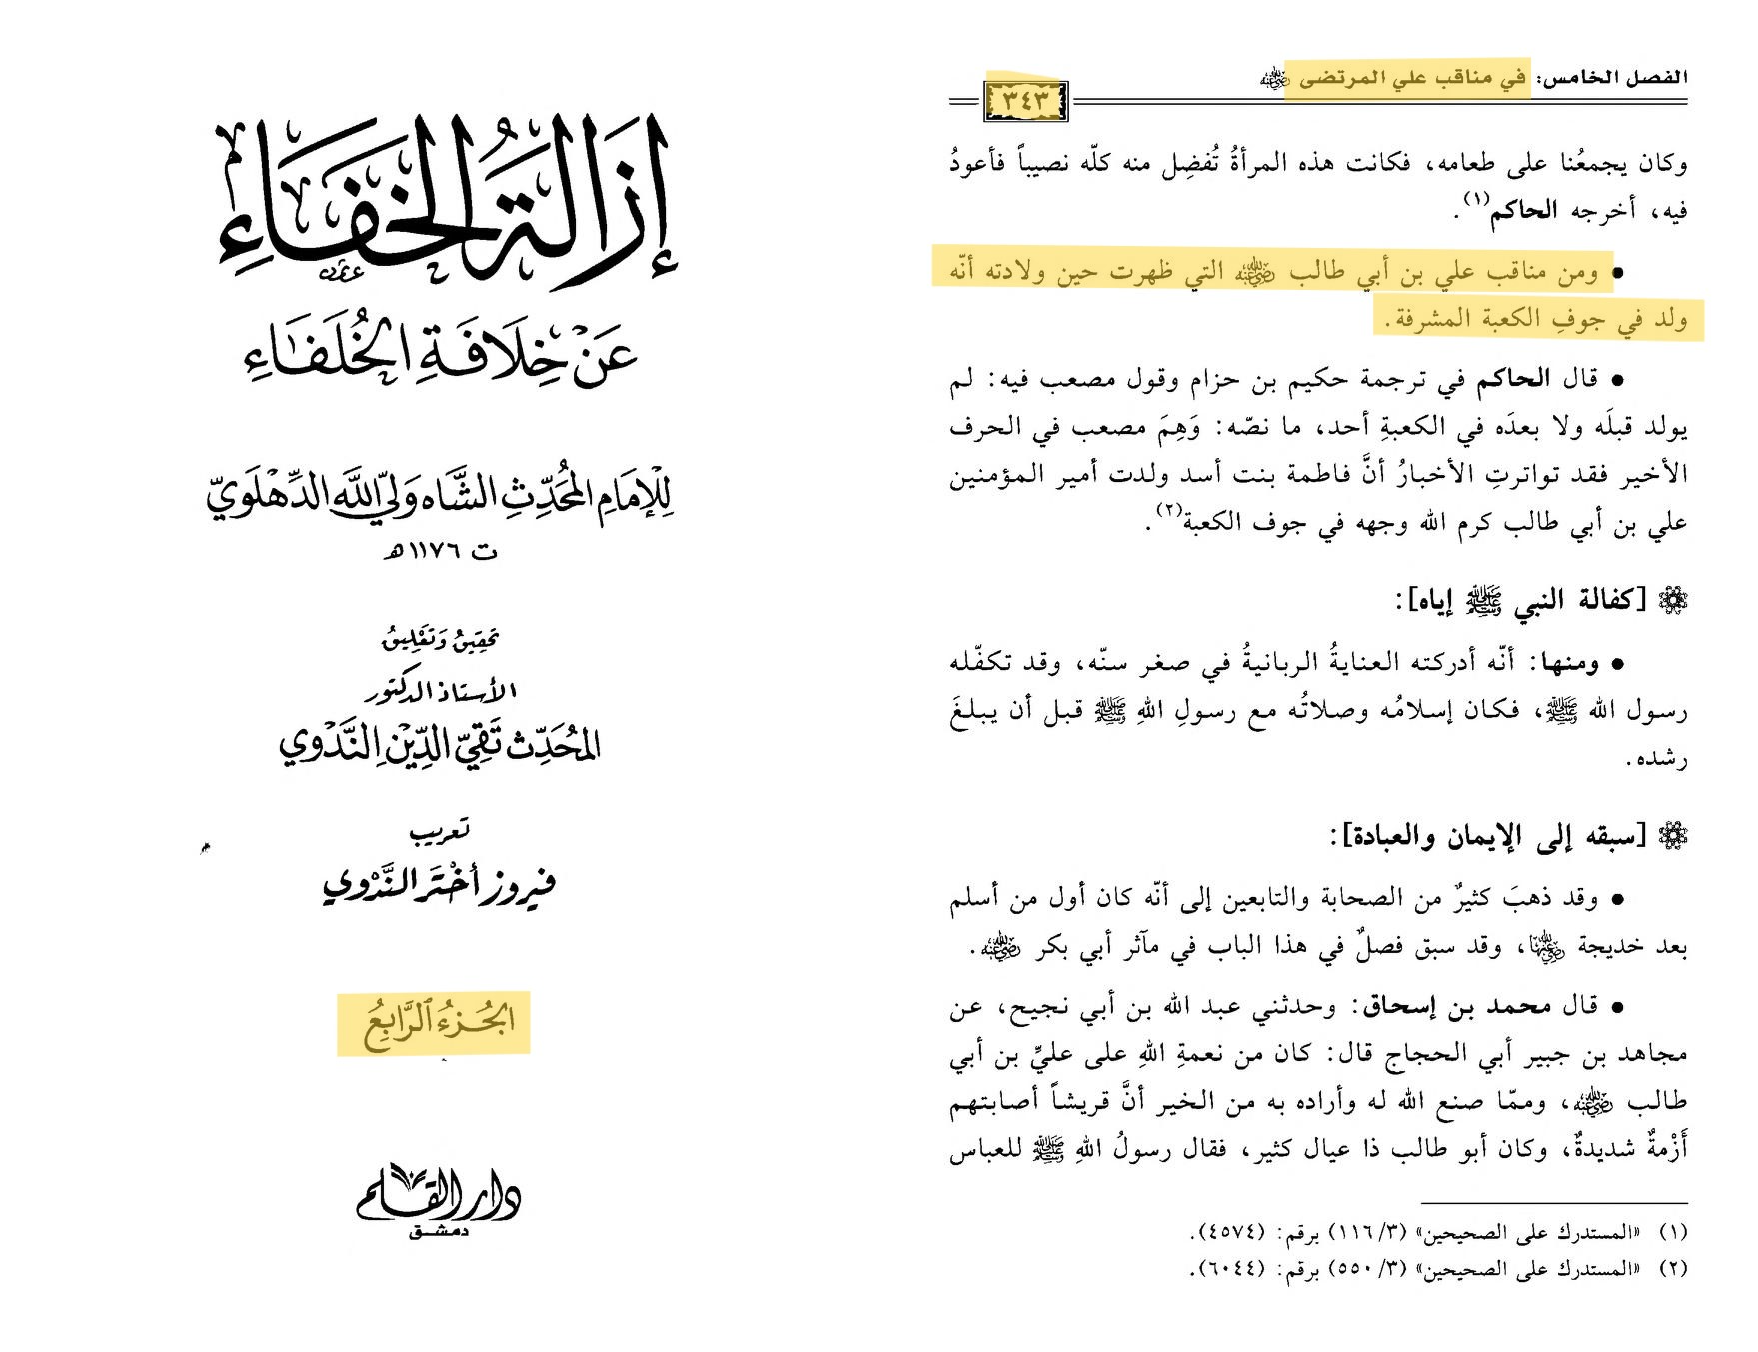 الفصل الخامس: في مناقب علي المرتضى رضي الله عنه
٣٤٣
وكان يجمعُنا على طعامه، فكانت هذه المرأةُ تُفضِل منه كلّه نصيباً فأعودُ
فيه، أخرجه الحاكم(١).
• ومن مناقب علي بن أبي طالب رضي الله عنه التي ظهرت حين ولادته أنّه
ولد في جوفِ الكعبة المشرفة.
• قال الحاكم في ترجمة حكيم بن حزام وقول مصعب فيه: لم
يولد قبلَه ولا بعدَه في الكعبةِ أحد، ما نصّه: وَهِمَ مصعب في الحرف
الأخير فقد تواترتِ الأخبارُ أنَّ فاطمة بنت أسد ولدت أمير المؤمنين
علي بن أبي طالب كرم الله وجهه في جوف الكعبة(٢).
[كفالة النبي ﷺ إياه]:
• ومنها: أنّه أدركته العنايةُ الربانيةُ في صغر سنّه، وقد تكفّله
رسول الله ﷺ، فكان إسلامُه وصلاتُه مع رسولِ اللهِ ﷺ قبل أن يبلغَ
رشده.
[سبقه إلى الإيمان والعبادة]:
• وقد ذهبَ كثيرٌ من الصحابة والتابعين إلى أنّه كان أول من أسلم
بعد خديجة رضي الله عنها، وقد سبق فصلٌ في هذا الباب في مآثر أبي بكر رضي الله عنه.
• قال محمد بن إسحاق: وحدثني عبد الله بن أبي نجيح، عن
مجاهد بن جبير أبي الحجاج قال: كان من نعمةِ اللهِ على عليِّ بن أبي
طالب رضي الله عنه، وممّا صنع الله له وأراده به من الخير أنَّ قريشاً أصابتهم
أَزْمةٌ شديدةٌ، وكان أبو طالب ذا عيال كثير، فقال رسولُ اللهِ ﷺ للعباس
(١) «المستدرك على الصحيحين» (٣/ ١١٦) برقم: (٤٥٧٤).
(٢) «المستدرك على الصحيحين» (٣/ ٥٥٠) برقم: (٦٠٤٤).
إزَالَةُ الخَفَاءِ
عَنْ خِلَافَةِ الخُلَفَاءِ
لِلإِمَامِ المُحَدِّثِ الشَّاه وَلِيّ اللَّه الدِّهْلَوِيّ
ت ١١٧٦ه
تحقِيقُ وَتَعْلِيقُ
الأستاذ الدكتور
المُحَدِّث تَقِيّ الدِّيْن النَّدْوِي
تعريب
فيروز أخْتَر النَّدْوِي
الجُزءُ الرَّابِعُ
دار القلم
دمشق